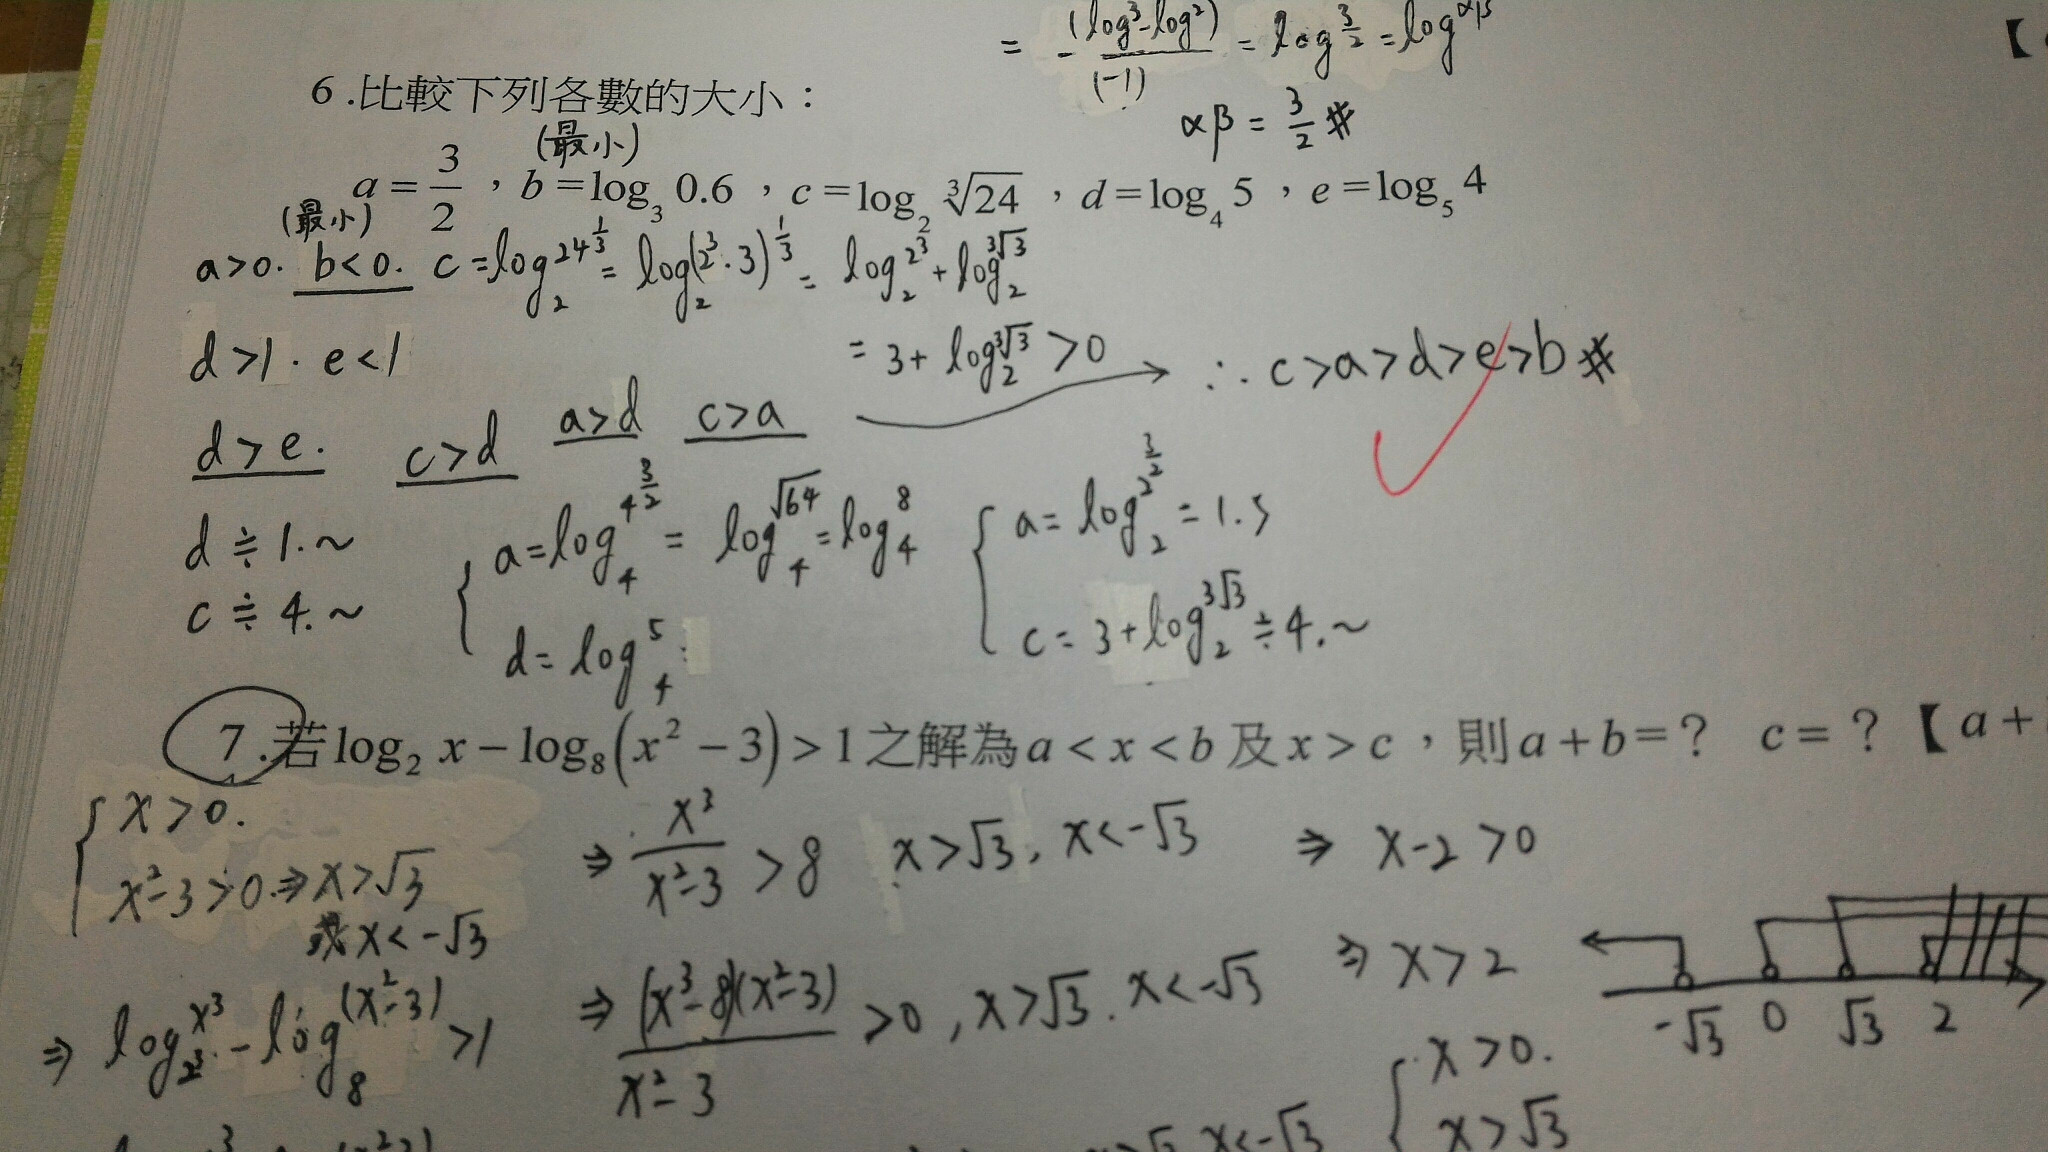 = -(log³-log²)/(-1) = log 3/2 = log αβ
αβ = 3/2 #
6.比較下列各數的大小：
(最小)
a = 3/2，b = log₃ 0.6，c = log₂ ∛24，d = log₄ 5，e = log₅ 4
(最小)
a>0. b<0. c = log₂ 24^(1/3) = log₂ (2³·3)^(1/3) = log₂ 2³ + log₂ ∛3
d>1. e<1
= 3 + log₂ ∛3 > 0
∴ c>a>d>e>b #
d>e. c>d a>d c>a
d≑1.~
c≑4.~
a = log₄ 4^(3/2) = log₄ √64 = log₄ 8
d = log₄ 5
a = log₂ 2^(3/2) = 1.5
c = 3 + log₂ 3√3 ≑ 4.~
7.若 log₂ x − log₈(x² − 3) > 1 之解為 a < x < b 及 x > c，則 a + b = ？ c = ？【a +
x>0.
x²-3>0. ⇒ x>√3
或 x<-√3
⇒ log_(2³) x³ - log₈ (x²-3) > 1
⇒ x³/(x²-3) > 8 x>√3, x<-√3
⇒ (x³-8)(x²-3)/(x²-3) > 0, x>√3. x<-√3
⇒ x-2 >0
⇒ x>2
-√3 0 √3 2
x>0.
x>√3
x<-√3